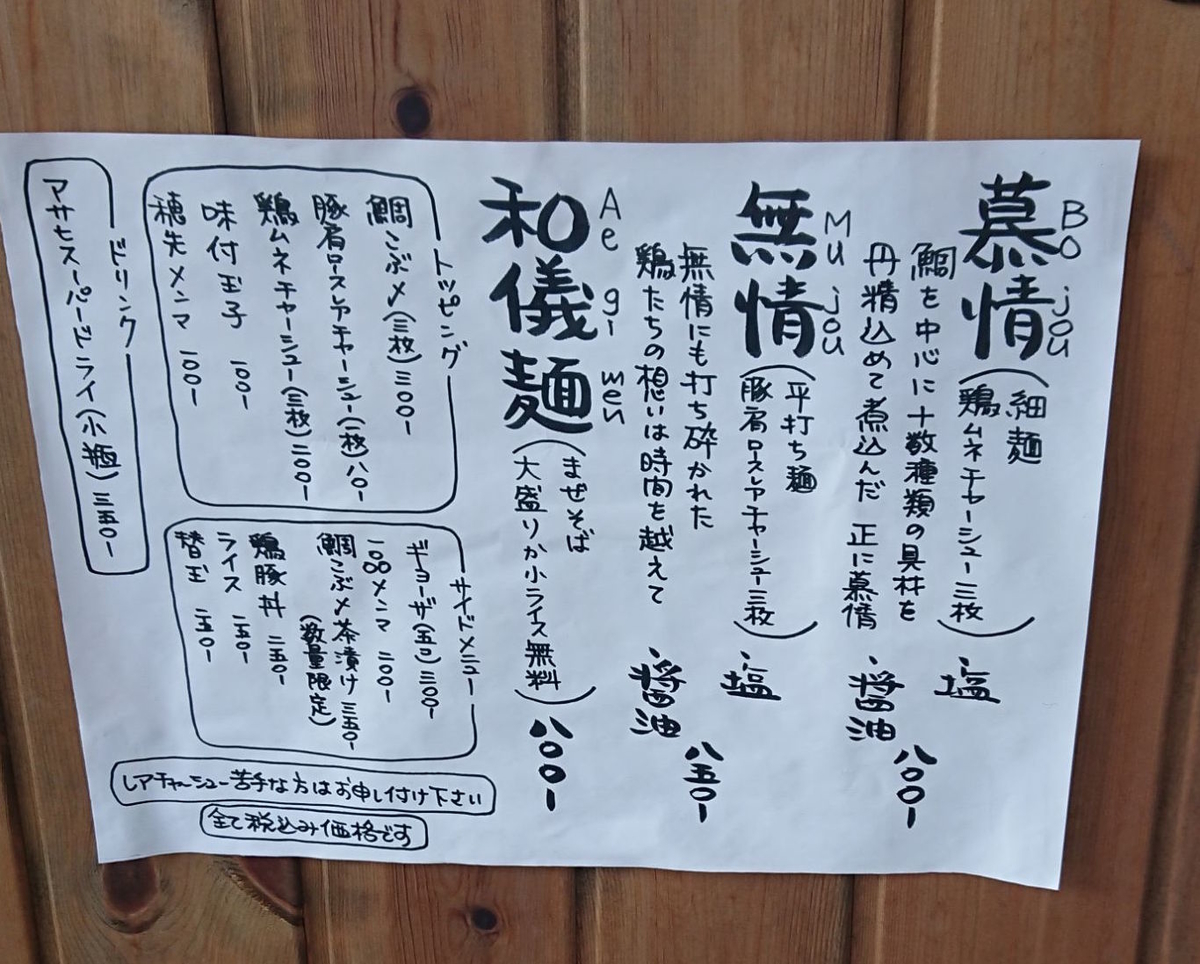 Bo jou
慕情
(細麺
鶏ムネチャーシュー三枚)
鯛を中心に十数種類の具材を
丹精込めて煮込んだ 正に慕情
・塩
・醤油
八〇〇-
Mu jou
無情
(平打ち麺
豚肩ロースレアチャーシュー三枚)
無情にも打ち砕かれた
鶏たちの想いは時間を越えて
・塩
・醤油
八五〇-
Ae gi men
和儀麺
(まぜそば
大盛りか小ライス無料)
八〇〇-
トッピング
鯛こぶ〆(三枚)三〇〇-
豚肩ロースレアチャーシュー(一枚)八〇-
鶏ムネチャーシュー(三枚)二〇〇-
味付玉子 一〇〇-
穂先メンマ 一〇〇-
サイドメニュー
ギョーザ(五コ)三〇〇-
一〇〇メンマ 二〇〇-
鯛こぶ〆茶漬け 三五〇-
(数量限定)
鶏豚丼 二五〇-
ライス 一五〇-
替玉 一五〇-
ドリンク
アサヒスーパードライ(小瓶)三五〇-
レアチャーシュー苦手な方はお申し付け下さい
全て税込み価格です